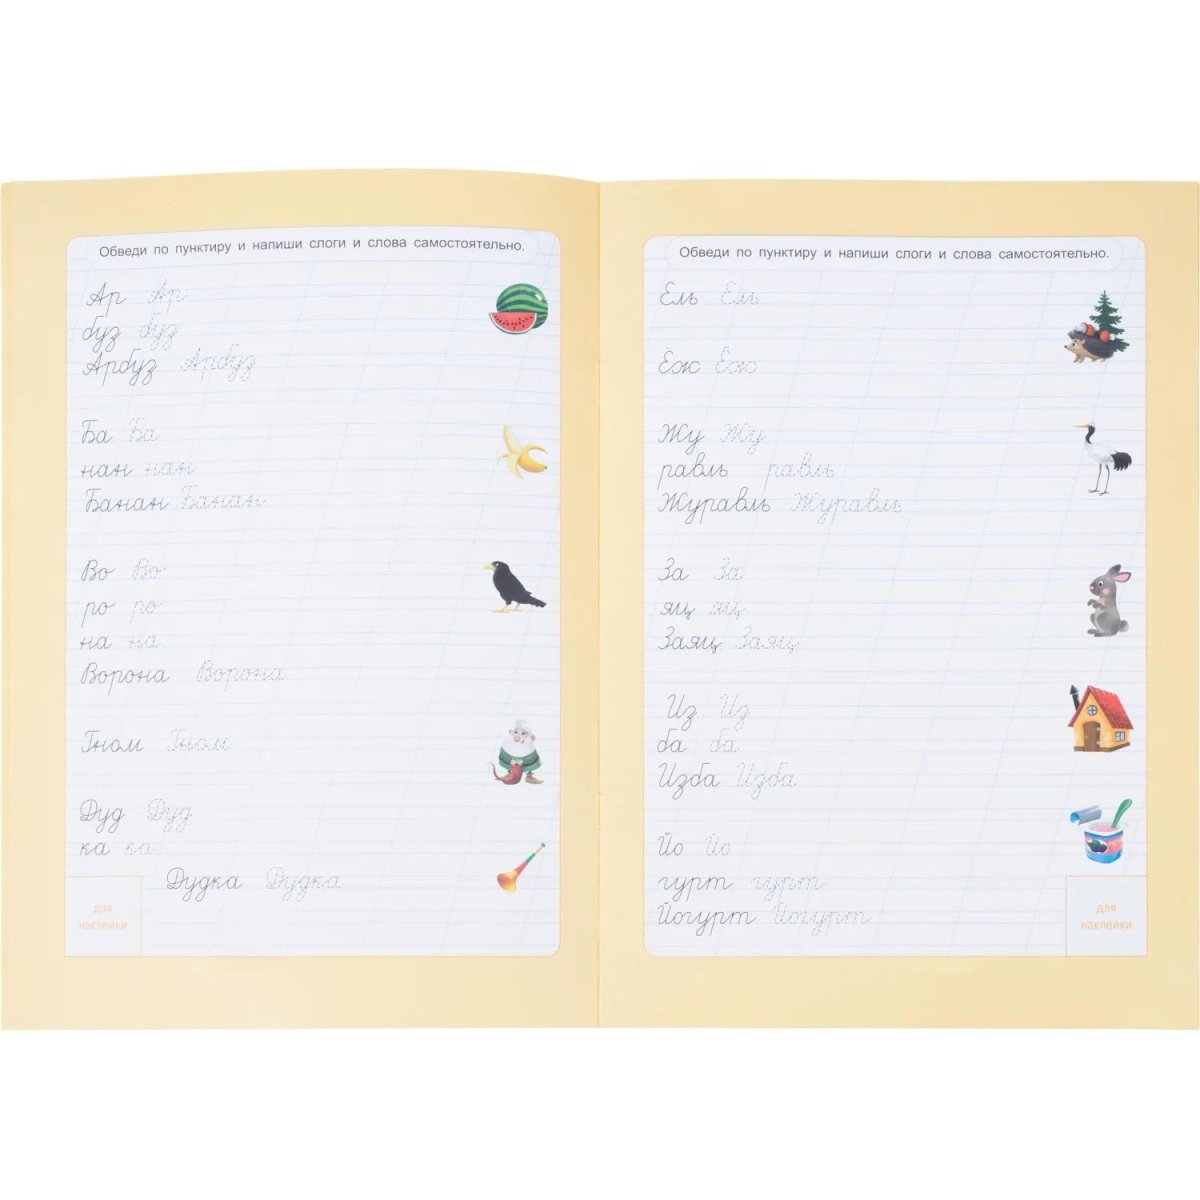 Обведи по пунктиру и напиши слоги и слова самостоятельно.
Ар Ар
буз буз
Арбуз Арбуз
Ба Ба
нан нан
Банан Банан
Во Во
ро ро
на на
Ворона Ворона
Гном Гном
Дуд Дуд
ка ка
Дудка Дудка
для
наклейки
Обведи по пунктиру и напиши слоги и слова самостоятельно.
Ель Ель
Ёж Ёж
Жу Жу
равль равль
Журавль Журавль
За За
яц яц
Заяц Заяц
Из Из
ба ба
Изба Изба
Йо Йо
гурт гурт
Йогурт Йогурт
для
наклейки